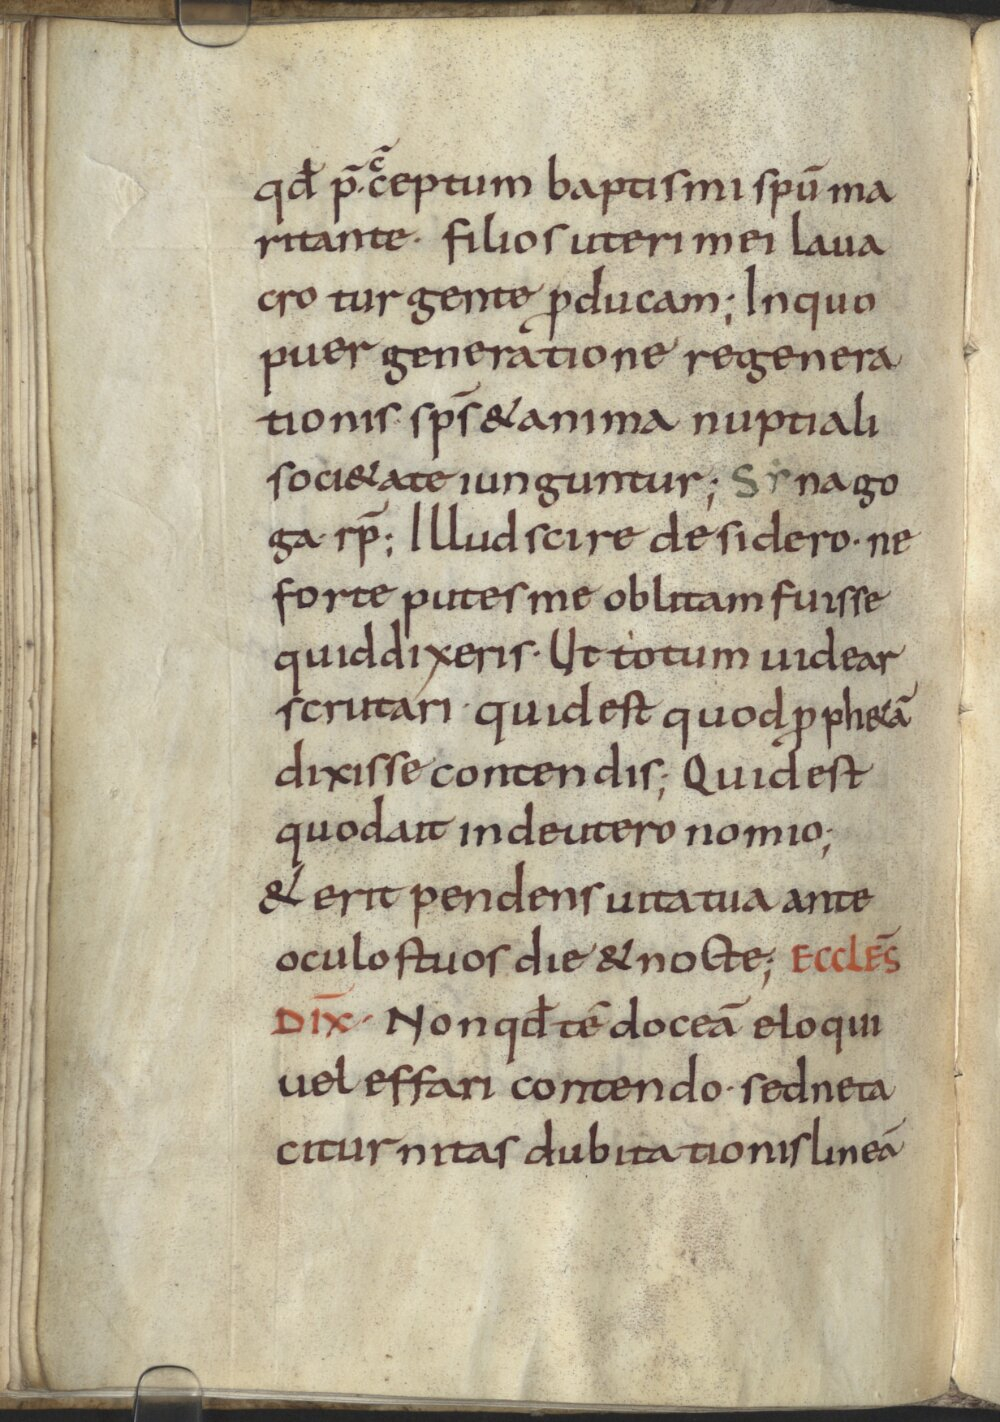 qđ p̄·c̄eptum baptismi spū ma
ritante· filios uteri mei laua
cro turgente ꝓducam; Inquo
puer generatione regenera
tionis· sps̄ & anima nuptiali
soci&ate iunguntur; Synago
ga· rp̄; Illud scire desidero· ne
forte putes me oblitam fuisse
quid dixeris· Ut totum uidear
scrutari· quid est quod ꝓph&ā
dixisse contendis; Quid est
quod ait in deutero nomio;
& erit pendens uita tua ante
oculos tuos die & nocte; ECCLES̄
DIX̄· Non qđ tē doceā eloqui
uel effari contendo· sed ne ta
citurnitas dubitationis lineā